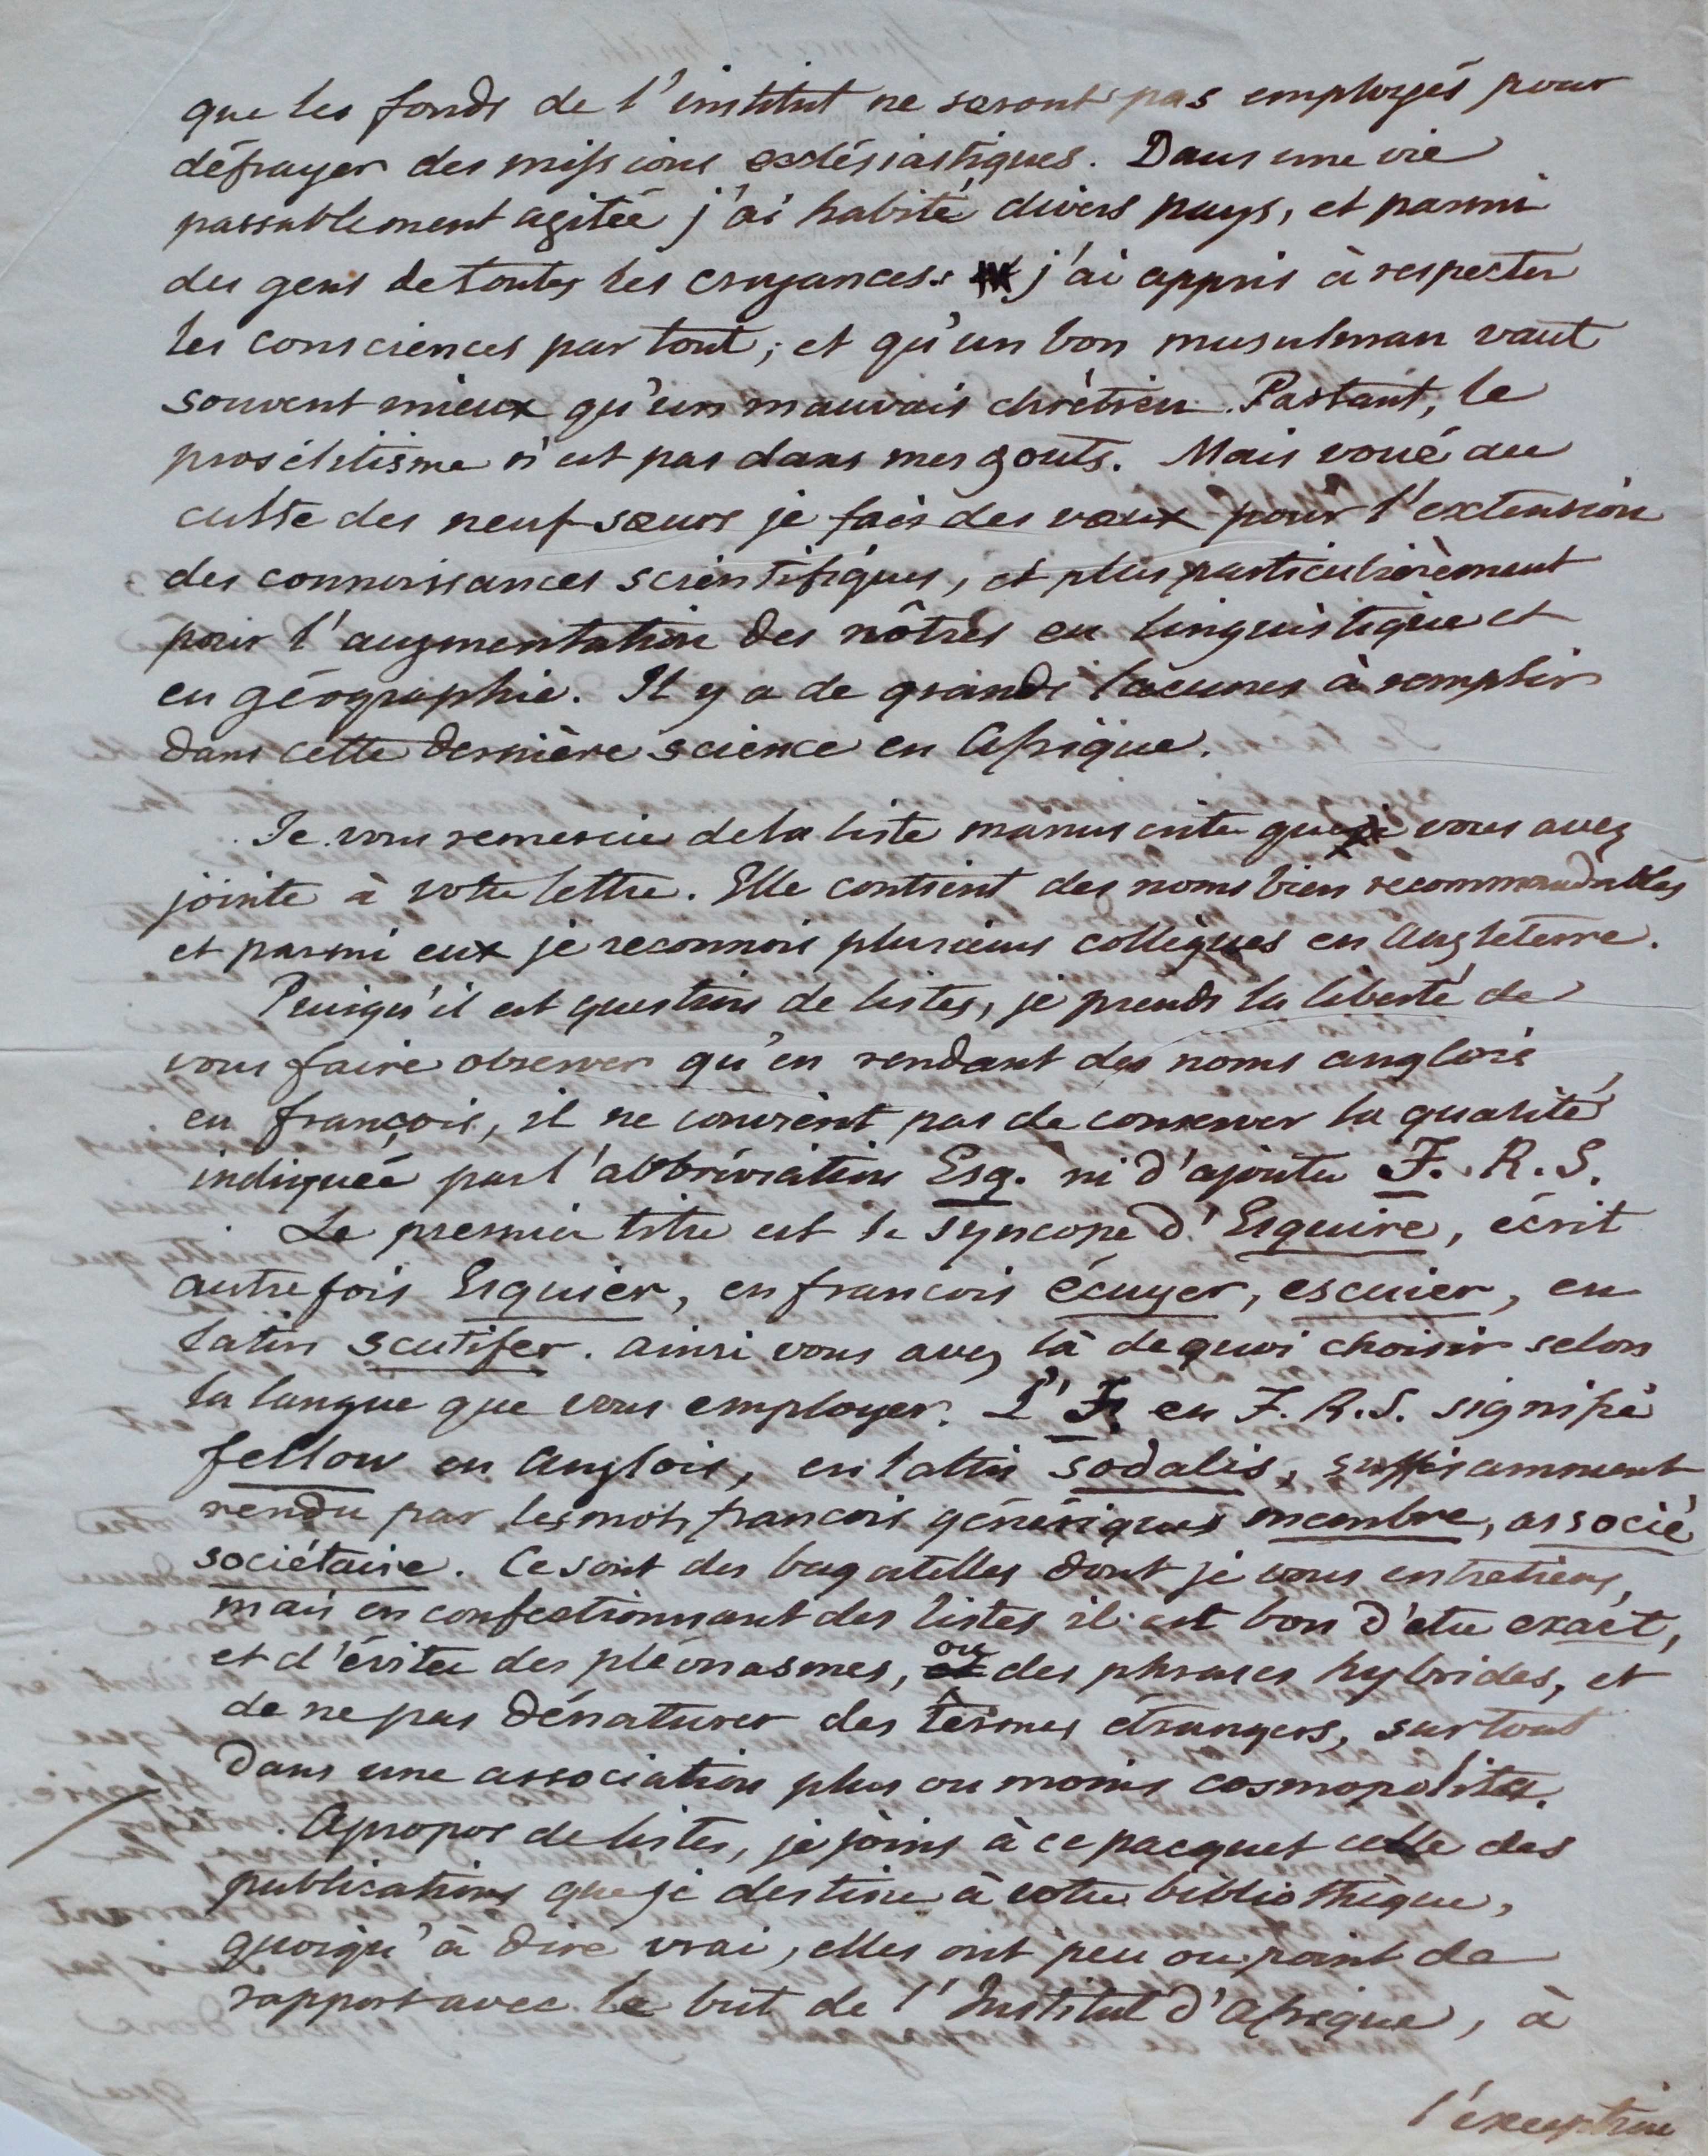 que les fonds de l'institut ne seront pas employés pour
défrayer des missions ecclésiastiques. Dans une vie
passablement agitée j'ai habité divers pays, et parmi
des gens de toutes les croyances: j'ai appris à respecter
les consciences partout; et qu'un bon musulman vaut
souvent mieux qu'un mauvais chrètien. Partant, le
prosélitisme n'est pas dans mes gouts. Mais voué au
culte des neuf sœurs je fais des vœux pour l'extension
des connoissances scientifiques, et plus particulièrement
pour l'augmentation des nôtres en linguistique et
en géographie. Il y a de grands lacunes à remplir
dans cette dernière science en Afrique.
Je vous remercie de la liste manuscrite que vous avez
jointe à votre lettre. Elle contient des noms bien recommandables
et parmi eux je reconnois plusieurs collègues en Angleterre.
Puisqu'il est question de listes, je prends la liberté de
vous faire observer qu'en rendant des noms anglois
en françois, il ne convient pas de conserver la qualité
indiquée par l'abbréviation Esq. ni d'ajouter F. R. S.
Le premier titre est le syncope d'Esquire, écrit
autrefois Esquier, en francois écuyer, escuier, en
latin scutifer. Ainsi vous avez là de quoi choisir selon
la langue que vous employer. L'F. en F. R. S. signifie
fellow en Anglois, en latin sodalis, suffisamment
rendu par les mots francois génériques membre, associé
sociétaire. Ce sont des bagatelles dont je vous entretiens,
mais en confectionnant des listes il est bon d'etre exact,
et d'éviter des pléonasmes, ou des phrases hybrides, et
de ne pas dénaturer des têrmes étrangers, surtout
dans une association plus ou moins cosmopolite.
Apropos de listes, je joins à ce pacquet celle des
publications que je destine à votre bibliothèque,
quoiqu'à dire vrai, elles ont peu ou point de
rapport avec le but de l'Institut d'Afrique, à
l'exception